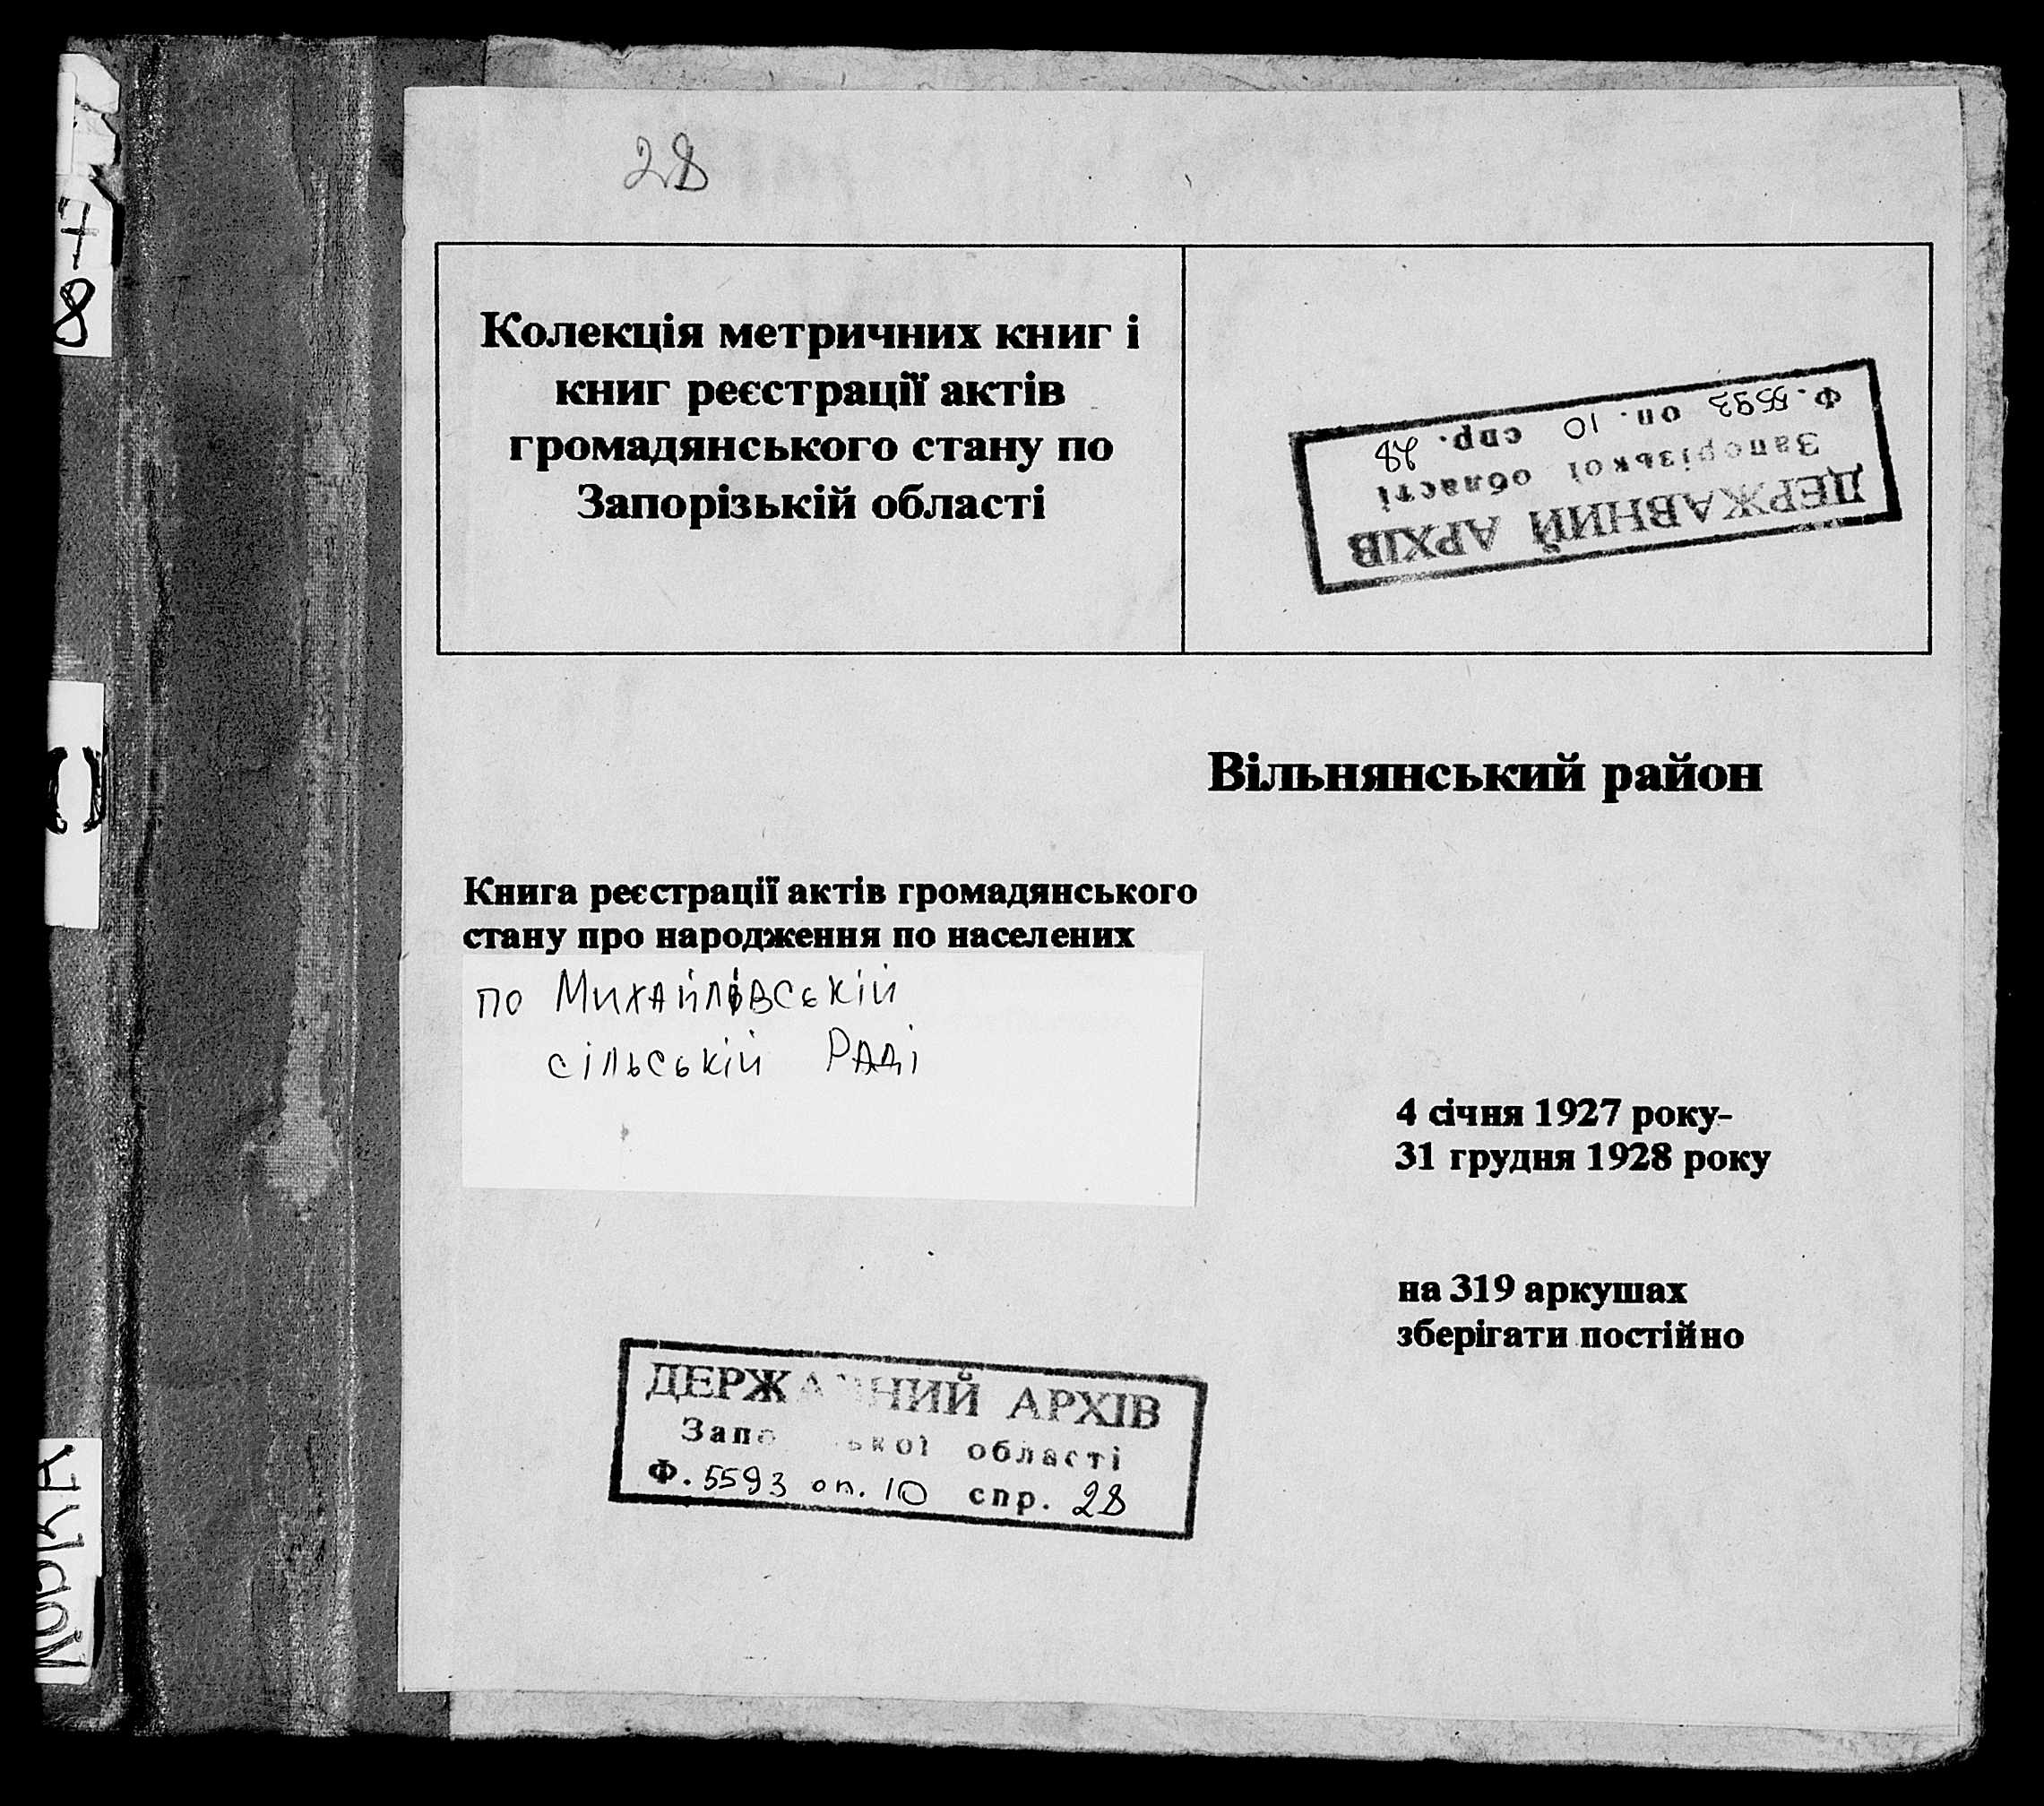 28
Колекція метричних книг і
книг реєстрації актів
громадянського стану по
Запорізькій області
ДЕРЖАВНИЙ АРХІВ
Запорізької області
Ф. 5593 оп. 10 спр. 28
Вільнянський район
Книга реєстрації актів громадянського
стану про народження по населених
по Михайлівській
сільській Раді
4 січня 1927 року-
31 грудня 1928 року
на 319 аркушах
зберігати постійно
ДЕРЖАВНИЙ АРХІВ
Запорізької області
Ф. 5593 оп. 10 спр. 28
7
8